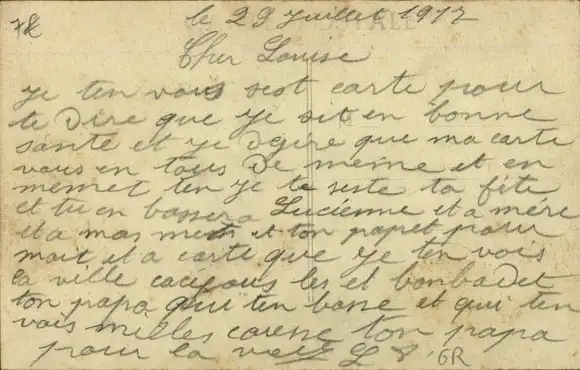 le 29 Juillet 1917
Cher Louise
Je ten vois seot carte pour
te Dire que je sit en bonne
santé et je dezire que ma carte
vous en tous De meme et en
memet ten je te reste ta féte
et tu en bassera Lucienne et a mére
et a mas mem et ton papet pour
moit et a carte que je ten vois
la ville les et bonbadet
ton papa qui ten basse et qui ten
vois milles caresse ton papa
pour la vei L
GR